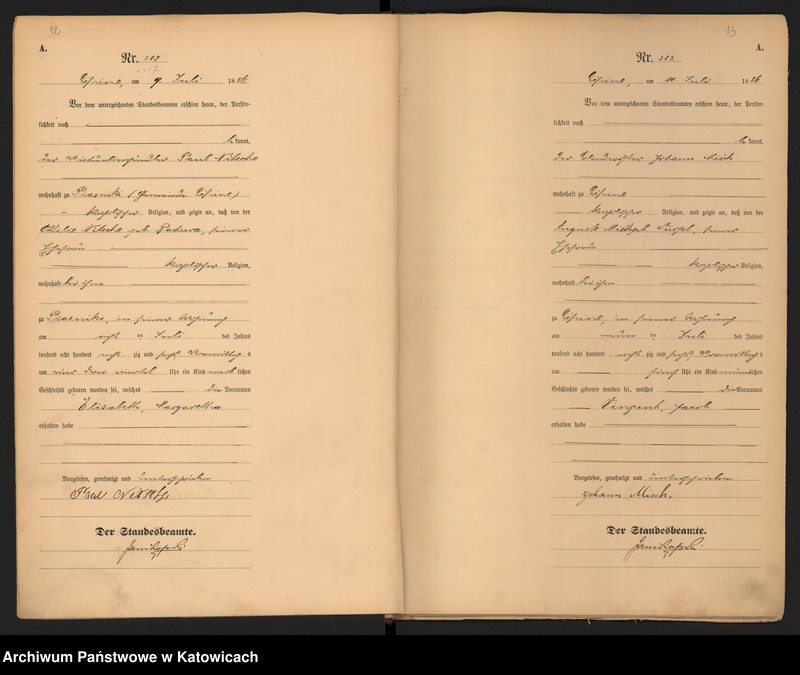 12
A.
Nr. 302
am 9. Juli 1886.
Vor dem unterzeichneten Standesbeamten erschien heute, der Persön-
lichkeit nach
be kannt,
der Paul Nitsche
wohnhaft zu Piasniki (Gemeinde
katholischer Religion, und zeigte an, daß von der
Nitsche geb. seiner
Ehefrau
katholischer Religion,
wohnhaft bei ihm
zu Piasniki, in seiner Wohnung
am acht ten Juli des Jahres
tausend acht hundert acht zig und sechs Vormittag s
um Uhr ein Kind weib lichen
Geschlechts geboren worden sei, welches die Vornamen
Elisabeth, Margaretha
erhalten habe
Vorgelesen, genehmigt und unterschrieben
Paul Nitsche
Der Standesbeamte.
13
A.
Nr. 303
am 10 Juli 1886
Vor dem unterzeichneten Standesbeamten erschien heute, der Persön-
lichkeit nach
be kannt,
der Johann Misch
wohnhaft zu
katholischer Religion, und zeigte an, daß von der
seiner
Ehefrau
katholischer Religion,
wohnhaft bei ihm
zu in seiner Wohnung
am neun ten Juli des Jahres
tausend acht hundert acht zig und sechs Vormittag s
um fünf Uhr ein Kind männlichen
Geschlechts geboren worden sei, welches die Vornamen
Vinzent, Jacob
erhalten habe
Vorgelesen, genehmigt und unterschrieben
Johann Misch.
Der Standesbeamte.
Archiwum Państwowe w Katowicach